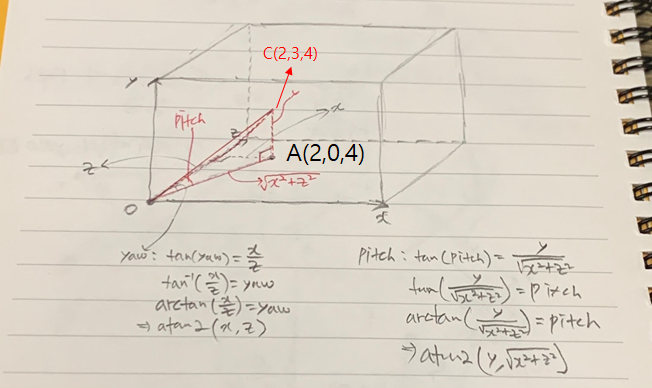 C(2,3,4)
Y
y
pitch
x
z
z
A(2,0,4)
√x²+z²
O
x
yaw : tan(yaw) = x/z
tan⁻¹(x/z) = yaw
arctan(x/z) = yaw
⇒ atan2(x, z)
pitch : tan(pitch) = y/√x²+z²
tan(y/√x²+z²) = pitch
arctan(y/√x²+z²) = pitch
⇒ atan2(y, √x²+z²)